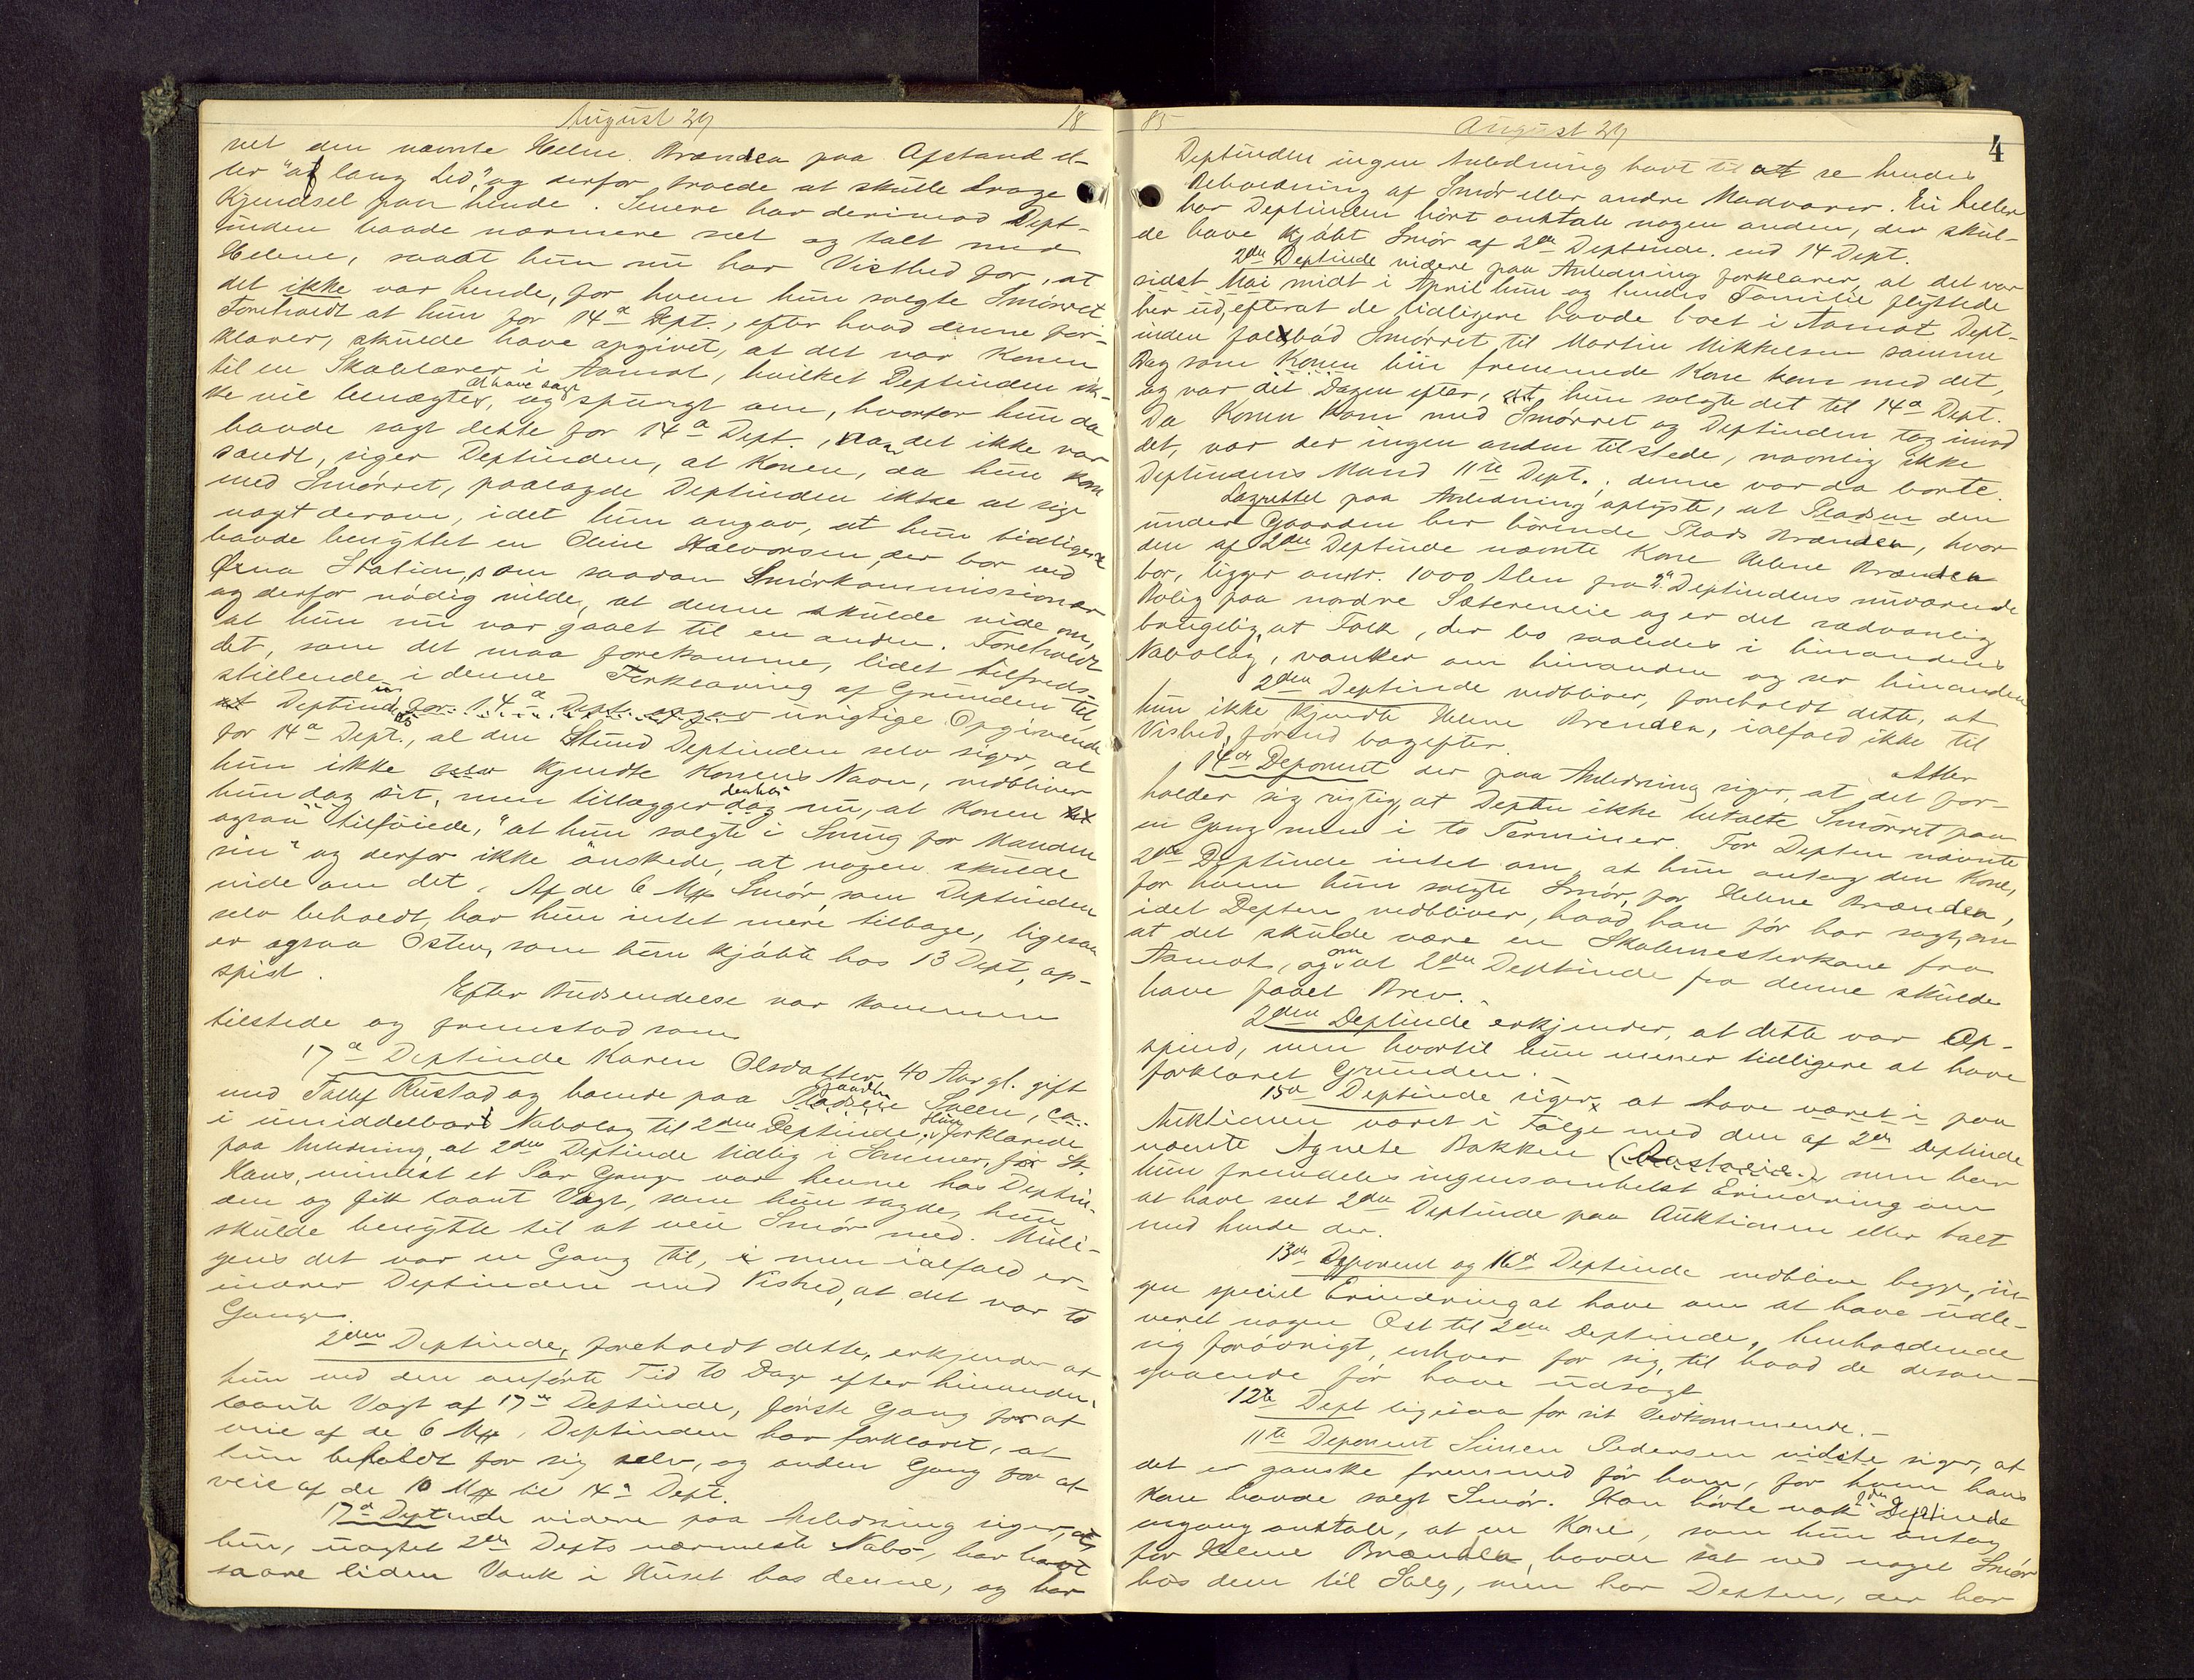 August 29
18
set den nævnte Helene Brænden paa Afstand el-
ler "af lang Led," og derfor troede at skulle drage
Kjendsel paa hende. Senere har derimod Dept-
inden baade nærmere seet og talt med
Helene, saadt hun nu har Visthed for, at
det ikke var hende, for hvem hun solgte Smørret
Foreholdt at hun for 14de Dept., efter hvad denne for-
klarer, skulde have angivet, at det var Konen
til en Skolelærer i Aamot, hvilket Deptinden ik-
ke vil benægte at have sagt, og spurgt om, hvorfor hun da
havde sagt dette for 14de Dept., naar det ikke var
sandt, siger Deptinden, at Konen, da hun kom
med Smørret, paalagde Deptinden ikke at sige
noget derom, idet hun angav, at hun tidligere
havde benyttet en Oline Halvorsen, der bor ved
Øxna Station, som saadan Smørkommissionær
og derfor nødig vilde, at denne skulde vide om,
at hun nu var gaaet til en anden. Foreholdt
det, som det maa forekomme, lidet tilfreds-
stillende i denne Forklaring af Grunden til
at Deptindens for 14de Dept. opgav urigtige Opgivende
for 14de Dept., al den Stund Deptinden selv siger, at
hun ikke kjendte Konens Navn, vedbliver
hun dog sit, men tillægger derhos nu, at Konen
ogsaa "tilføiede," "at hun solgte i Smug for Manden
sin" og derfor ikke ønskede, at nogen skulde
vide om det. Af de 6 Mk Smør, som Deptinden
selv beholdt, har hun intet mere tilbage, ligesaa
er ogsaa Osten, som hun kjøbte hos 13 Dept, op-
spist.
Efter Budsendelse var kommen
tilstede og fremstod som
17de Deptinde Karen Olsdatter 40 Aar gl. gift
med Tollef Rustad og boende paa Pladsen Gaarden Sollen, ca.
i umiddelbart Nabolag til 2den Deptinde; Hun forklarede
paa Anledning, at 2den Deptinde tidlig i Sommer, før St.
Hans, mindst et Par Gange var henne hos Deptin-
den og fik laant Vægt, som hun sagde, hun
skulde benytte til at veie Smør med. Muli-
gens det var en Gang til, men ialfald er-
indrer Deptinden med Vished, at det var to
Gange.
2den Deptinde, foreholdt dette, erkjender at
hun ved den anførte Tid to Dage efter hinanden
laante Vægt af 17de Deptinde, første Gang for at
veie af de 6 Mk, Deptinden har forklaret, at
hun beholdt for sig selv, og anden Gang for at
veie af de 10 Mk til 14de Dept.
17de Deptinde videre paa Anledning siger, at
hun, uagtet 2den Depts nærmeste Nabo, har havt
saare liden Vank i Huset hos denne, og har
85
August 29
4
Deptinden ingen Anledning havt til at se hendes
Beholdning af Smør eller andre Madvarer. Ei heller
har Deptinden hørt omtale nogen anden, der skul-
de have kjøbt Smør af 2den Deptinde end 14 Dept.
2den Deptinde videre paa Anledning forklarer, at det var
sidst Mai midt i April hun og hendes Familie flyttede
her ud, efterat de tidligere havde boet i Aamot. Dept-
inden falbød Smørret til Martin Mikkelsen samme
Dag som Konen hin fremmede Kone kom med det,
og var det Dagen efter, at hun solgte det til 14de Dept.
Da Konen kom med Smørret og Deptinden tog imod
det, var der ingen anden tilstede, navnlig ikke
Deptindens Mand 11te Dept.; denne var da borte.
Lagrettet paa Anledning oplyste, at Pladsen den
under Gaarden her hørende Plads Brænden, hvor
den af 2den Deptinde nævnte Kone Helene Brænden
bor, ligger omtr. 1000 Alen fra 2den Deptindens nuværende
Bolig paa nordre Sætereneie og er det sædvanlig
brugelig, at Folk, der bo saaledes i hinandens
Nabolag, vanker om hinanden og ser hinanden
2den Deptinde vedbliver, foreholdt dette, at
hun ikke kjendte Helene Brænden, ialfald ikke til
Vished, førend bagefter.
14de Deponent der paa Anledning siger, at det for-
holder sig rigtig, at Depten ikke betalte Smørret paa
en Gang men i to Terminer. For Depten nævnte
2den Deptinde intet om, at hun antog den Kone,
for hvem hun solgte Smør, for Helene Brænden,
idet Depten vedbliver, hvad han før har sagt, om
at det skulde være en Skolemesterkone fra
Aamot, og om at 2den Deptinde fra denne skulde
have faaet Brev.
2den Deptinde erkjender, at dette var Op-
spind, men hvortil hun mener tidligere at have
forklaret Grunden.
15de Deptinde siger at have været i paa
Auktionen været i Følge med den af 2den Deptinde
nævnte Agnete Bakken, men har
hun fremdeles ingensomhelst Erindring om
at have seet 2den Deptinde paa Auktionen eller talt
med hende der.
13de Deponent og 16de Deptinde vedblive begge, in-
gen speciel Erindring at have om at have udle-
veret nogen Ost til 2den Deptinde, henholdende
sig forøvrigt, enhver for sig, til hvad de desan-
gaaende før have udsagt
12te Dept ligesaa for sit Vedkommende.-
11te Deponent Simen Pedersen vidste siger, at
det er ganske fremmed for ham, for hvem hans
Kone havde solgt Smør. Han hørte nok 2den Deptinde
engang omtale, at en Kone, som hun antog
for Helene Brænden, havde sat ned noget Smør
hos dem til Salg, men har Depten, der har